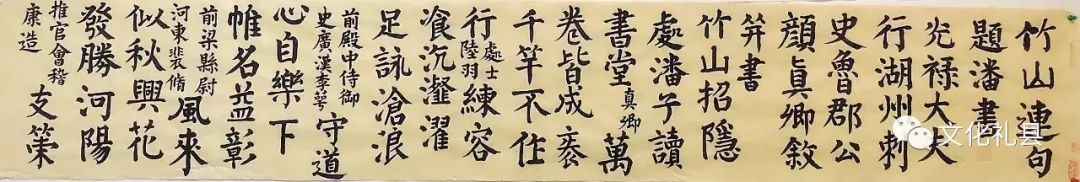 竹山連句
題潘書
光禄大夫
行湖州刺
史魯郡公
顔真卿敘
并書
竹山招隱
處潘子讀
書堂真卿萬
卷皆成袠
千竿不住
行處士陸羽練容
飡沆瀣濯
足詠滄浪
前殿中侍御
史廣漢李萼守道
心自樂下
帷名益彰
前梁縣尉
河東裴脩風來
似秋興花
發勝河陽
推官會稽
康造支策
文化礼县